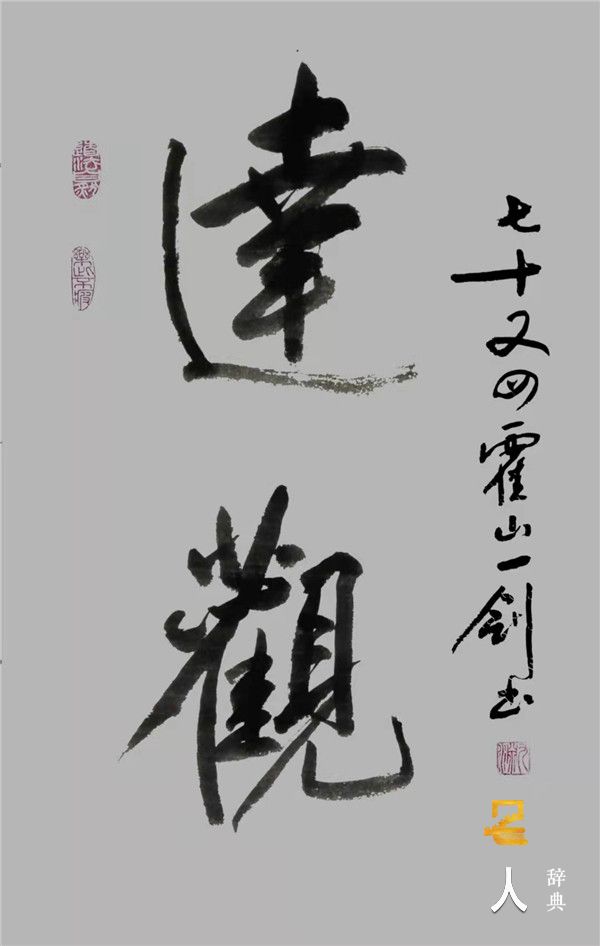 達觀
七十又四霍山一剑书
名人
辞典